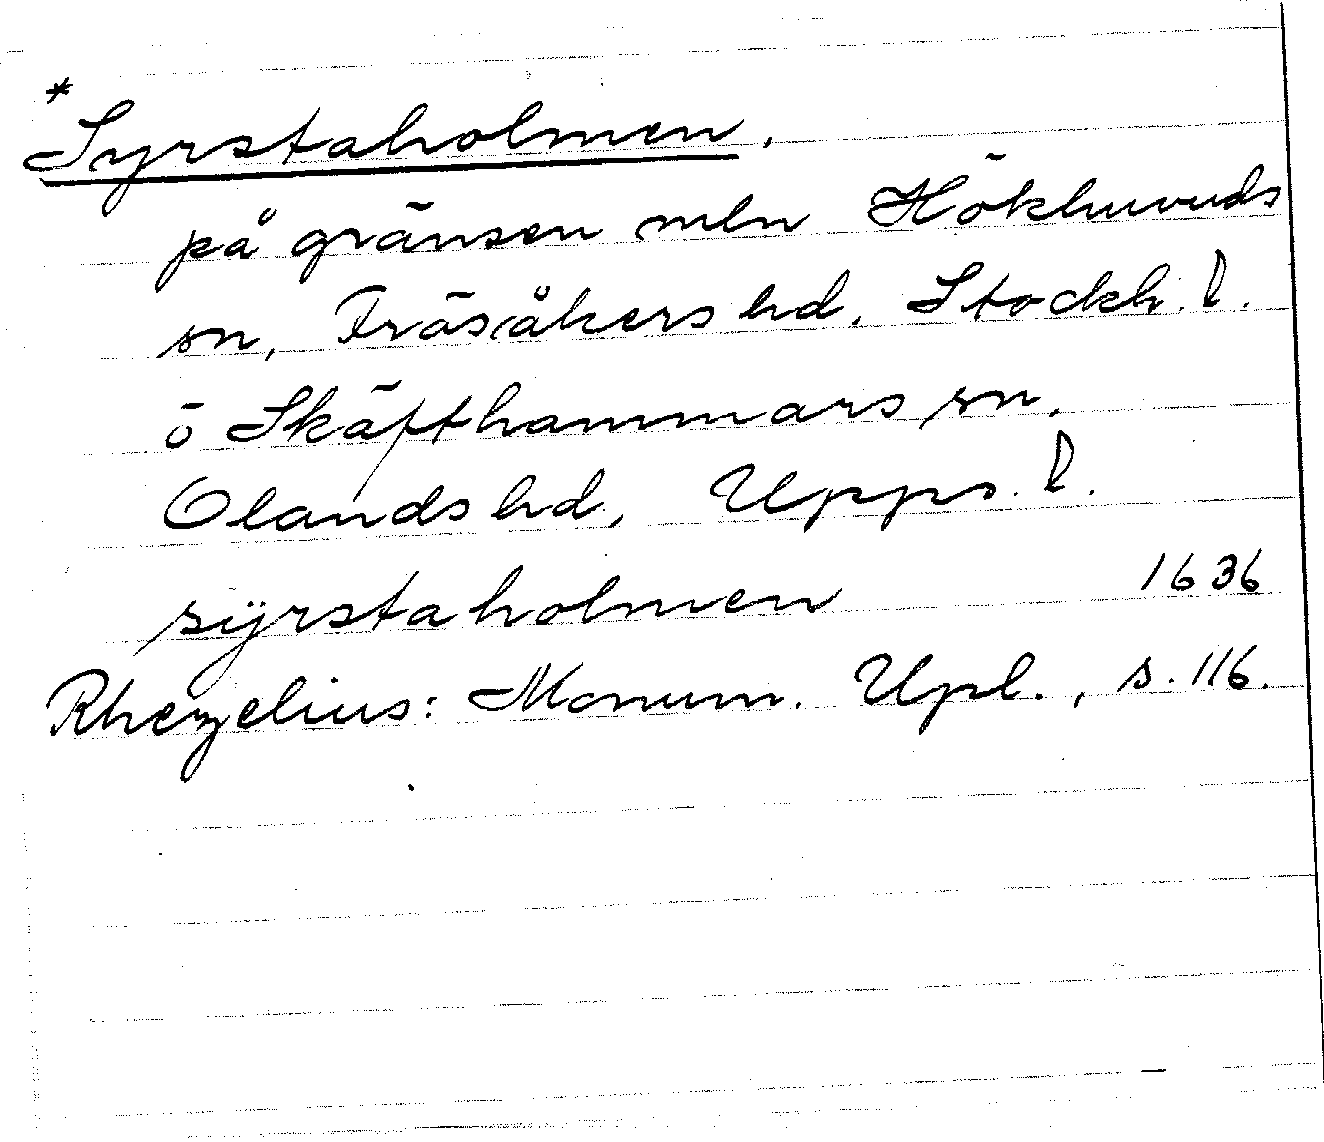 *Syrstaholmen.
på gränsen mln Hökhuvuds
sn, Fräsåkers hd, Stockh. l.
ö Skäfthammars sn,
Olands hd, Upps. l.
sÿrstaholmen 1636
Rhezelius: Monum. Upl., s. 116.